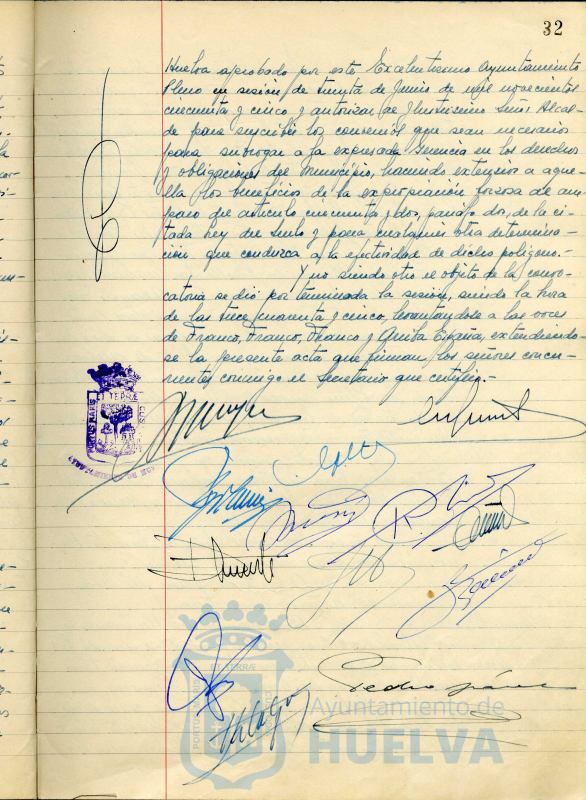 32
Huelva aprobado por este Excelentísimo Ayuntamiento
Pleno en sesión de treinta de Junio de mil novecientos
cincuenta y cinco y autorizar al Ilustrísimo Señor Alcal-
de para suscribir los convenios que sean necesarios
para subrogar a la expresada Gerencia en los derechos
y obligaciones del Municipio, haciendo extensivo a aque-
lla los beneficios de la expropiación forzosa al am-
paro del artículo cincuenta y dos, párrafo dos, de la ci-
tada ley del Suelo y para cualquier otra determina-
ción que conduzca a la efectividad de dicho polígono.-
Y no siendo otro el objeto de la convo-
catoria se dió por terminada la sesión, siendo la hora
de las trece cuarenta y cinco, levantandose a las voces
de Franco, Franco, Franco y Arriba España, extendiendo-
se la presente acta que firman los señores concu-
rrentes conmigo el Secretario que certifico.-
PORTUS MARIS
ET TERRÆ
CUS
Duarte
Pedro
Hidalgo
ET TERRÆ
Ayuntamiento de
HUELVA